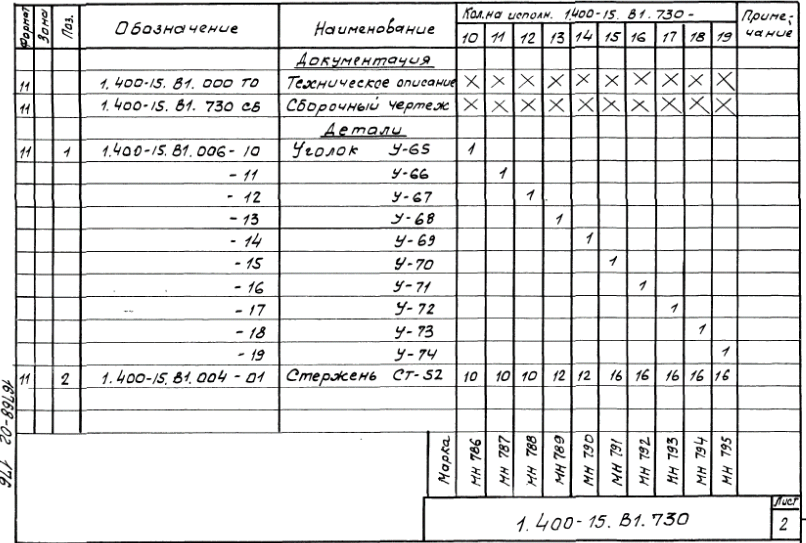 Формат Зона Поз. Обозначение Наименование Кол. на исполн. 1.400-15.В1.730- Приме-
10 11 12 13 14 15 16 17 18 19 чание
Документация
11 1.400-15.В1.000 ТО Техническое описание X X X X X X X X X X
11 1.400-15.В1.730 СБ Сборочный чертеж X X X X X X X X X X
Детали
11 1 1.400-15.В1.006-10 Уголок У-65 1
-11 У-66 1
-12 У-67 1
-13 У-68 1
-14 У-69 1
-15 У-70 1
-16 У-71 1
-17 У-72 1
-18 У-73 1
-19 У-74 1
11 2 1.400-15.В1.004-01 Стержень СТ-52 10 10 10 12 12 16 16 16 16 16
Марка МН 786 МН 787 МН 788 МН 789 МН 790 МН 791 МН 792 МН 793 МН 794 МН 795
1.400-15.В1.730
Лист
2
176